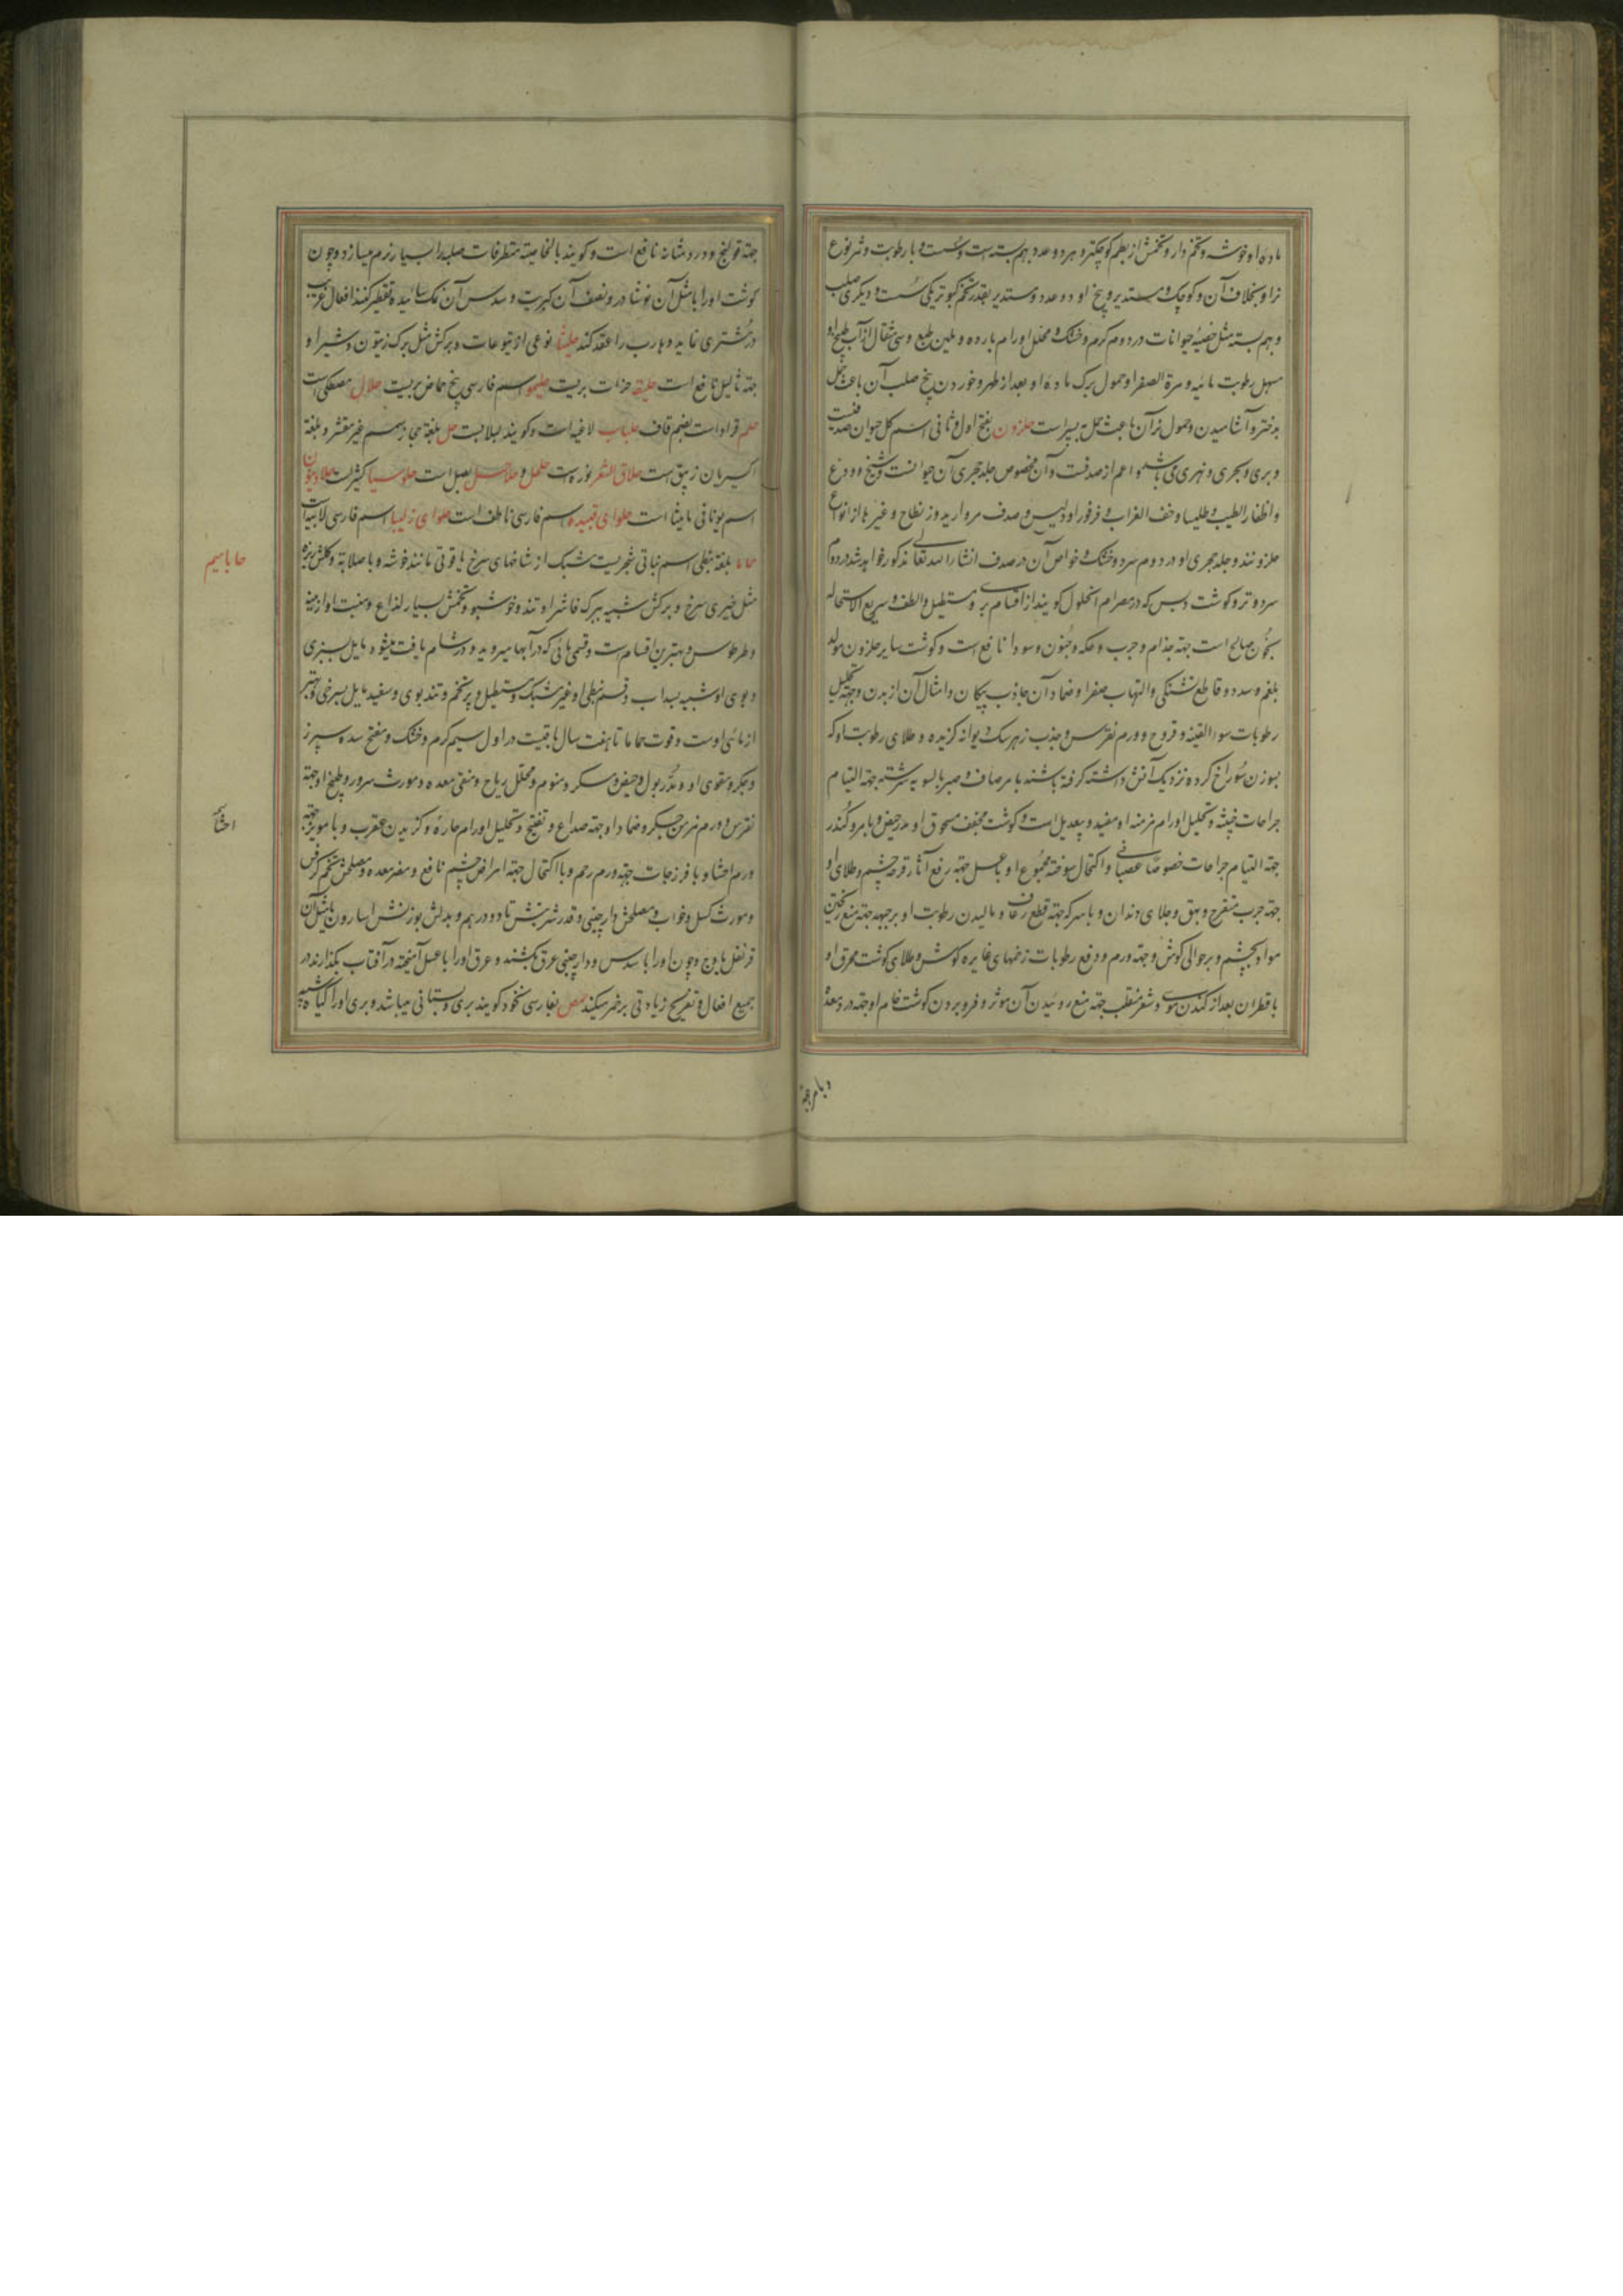 ماده او خوشه و تخم دار و تخمش از بطم کوچکتر و هر دو عدد بهم بسته است و سست و با رطوبت و ثمر نوع
نر او بخلاف آن و کوچک و مستدیر و بیخ او دو عدد و مستدیر بقدر تخم کبوتر یکی سست و دیگری صلب
و بهم بسته مثل خصیهٔ حیوانات در دوم گرم و خشک و محلل اورام بارده و ملین طبع و سی مثقال از آب طبیخ او
مسهل رطوبت مائیه و مرة الصفرا و حمول برگ ماده او بعد از طهر و خوردن بیخ صلب آن باعث حمل
بدختر و آشامیدن و حمول نر آن باعث حمل به پسر است حلزون بفتح اول و ثانی اسم کل حیوان صدفیست
و بری و بحری و نهری می باشد و اعم از صدفست و آن مخصوص جلد حجری آن حیوانست و شنج و ودع
و اظفار الطیب و طلیسا و خف الغراب و فرفور اولیس و صدف مروارید و زنطاح و غیرها از انواع
حلزونند و جلد حجری او در دوم سرد و خشک و خواص آن در صدف انشاء الله تعالی مذکور خواهد شد در دوم
سرد و تر و گوشت دبس که در مصر ام الخلول گویند از اقسام بری و مستطیل و الطف و سریع الاستحاله
بخون صالح است جهة جذام و جرب و حکه و جنون و سودا نافع است و گوشت سایر حلزون مولد
بلغم و سدد و قاطع تشنگی و التهاب صفرا و ضماد آن جاذب پیکان و امثال آن از بدن و جهة تحلیل
رطوبات سوء القنیه و قروح و ورم نقرس و جذب زهر سک دیوانه گزیده و طلای رطوبت او که
بسوزن سوراخ کرده نزدیک آتش داشته گرفته باشند با مر صاف و صبر بالسویه سرشته جهة التیام
جراحات خبیثه و تحلیل اورام مزمنه او مفید و بیعدیل است و گوشت مجفف مسحوق او مدر حیض و با مر و کندر
جهة التیام جراحات خصوصا عصبانی و اکتحال سوخته مجموع او با عسل جهة رفع آثار قرحه چشم و طلای او
جهة جرب متقرح و بهق و جلای دندان و با سرکه جهة قطع رعاف و مالیدن رطوبت او بر جبهه جهة منع ریختن
مواد بچشم و بر حوالی گوش و جهة ورم و دفع رطوبات زخمهای غایره گوش و طلای گوشت محرق او
با قطران بعد از کندن موی و شعر منقلب جهة منع روئیدن آن موثر و فرو بردن گوشت خام او جهة درد معده
و با مر جهة
جهة قولنج و درد مثانه نافع است و گویند بالخاصیة متطرقات صلبه را بسیار نرم میسازد و چون
گوشت او را با مثل آن نوشادر و نصف آن کبریت و سدس آن نمک سائیده تقطیر کنند افعال غریب
در مشتری نماید و هارب را عقد کند حلیثا نوعی از یتوعات و برگش مثل برگ زیتون و شیر او
جهة ثالیل نافع است حلیقه حزات بریست حلیمو اسم فارسی بیخ حماض بریست حلال مصطکی است
حلم قراد است بضم قاف حلباب لاغیه است و گویند لبلابست حل بلغة حجاز سمسم غیر مقشر و بلغة
اکسیریان زیبق است حلاق الشعر نوره است حلحل و حلاحل بصل است حلوسیا کثیر است حلادیون
اسم یونانی مامیثا است حلوای قبیده اسم فارسی ناطف است حلوای زلیبیا اسم فارسی زلابیه است
حماما بلغة نبطی اسم نباتی شجریست مشبک از شاخهای سرخ یاقوتی مانند خوشه و با صلابة و گلش ریزه
مثل خیری سرخ و برگش شبیه ببرگ فاشرا و تند و خوشبو و تخمش بسیار لذاع و منبت او ارمنیه
و طرطوس و بهترین اقسام است و قسمی مائی که در آبها میروید و در شام یافت میشود مایل بسبزی
و بوی او شبیه بسداب و قسم نبطی او غیر مشبک و مستطیل و پر تخم و تند بوی و سفید مایل بسرخی و بهتر
از مائی اوست و قوت حماما تا هفت سال باقیست در اول سیم گرم و خشک و مفتح سده سپرز
و جگر و مقوی او و مدر بول و حیض و مسکر و منوم و محلل ریاح و منقی معده و مورث سرور و طبیخ او جهة
نقرس و ورم مزمن جگر و ضماد او جهة صداع و تفتیح و تحلیل اورام حاره و گزیدن عقرب و با مویز جهة
ورم احشا و با فرزجات جهة ورم رحم و با اکتحال جهة امراض چشم نافع و مضر معده و مصلحش تخم کرفس
و مورث کسل و خواب و مصلحش دارچینی و قدر شربتش تا دو درهم و بدلش بوزنش اسارون یا مثل آن
قرنفل یا وج و چون او را با سدس او دارچینی عرق بکشند و عرق او را با عسل آمیخته در آفتاب بگذارند در
جمیع افعال و تفریح زیادتی بر خمر میکند حمص بفارسی نخود گویند بری و بستانی میباشد و بری او را گیاه شبیه
حاباسیم
احشا